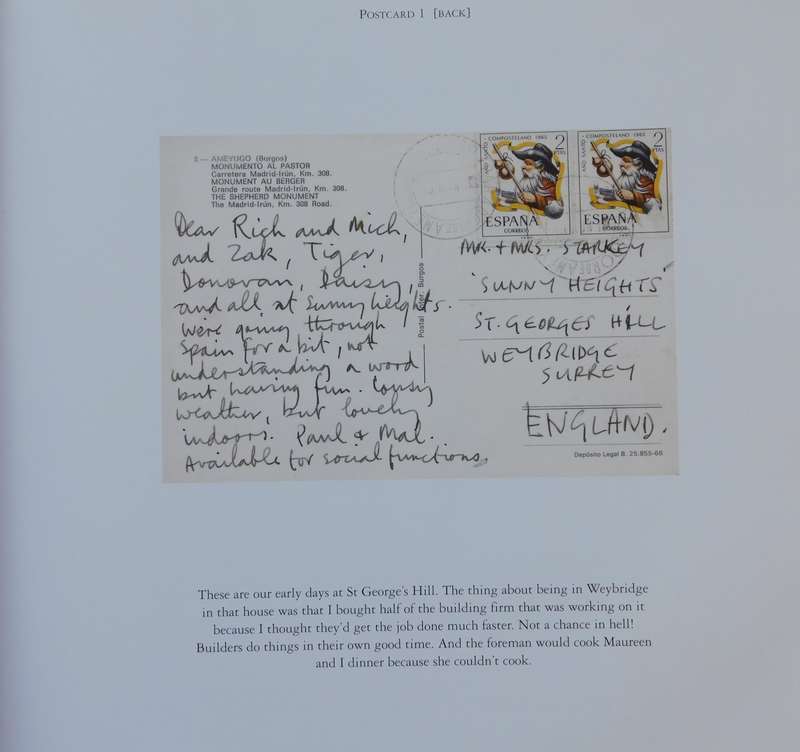 POSTCARD 1 [BACK]
8 — AMEYUGO (Burgos)
MONUMENTO AL PASTOR
Carretera Madrid-Irún, Km. 308.
MONUMENT AU BERGER
Grande route Madrid-Irún, Km. 308.
THE SHEPHERD MONUMENT
The Madrid-Irún, Km. 308 Road.
AÑO SANTO COMPOSTELANO 1965
2
PTAS
ESPAÑA
CORREOS
AÑO SANTO COMPOSTELANO 1965
2
PTAS
ESPAÑA
CORREOS
Dear Rich and Mich,
and Zak, Tiger,
Donovan, Daisy,
and all at Sunny heights.
We're going through
Spain for a bit, not
understanding a word
but having fun. Lousy
weather, but lovely
indoors. Paul & Mal.
Available for social functions.
Postal Burgos
MR. + MRS. STARKEY
'SUNNY HEIGHTS'
ST. GEORGES HILL
WEYBRIDGE
SURREY
ENGLAND.
Depósito Legal B. 25.855-66
These are our early days at St George's Hill. The thing about being in Weybridge
in that house was that I bought half of the building firm that was working on it
because I thought they'd get the job done much faster. Not a chance in hell!
Builders do things in their own good time. And the foreman would cook Maureen
and I dinner because she couldn't cook.